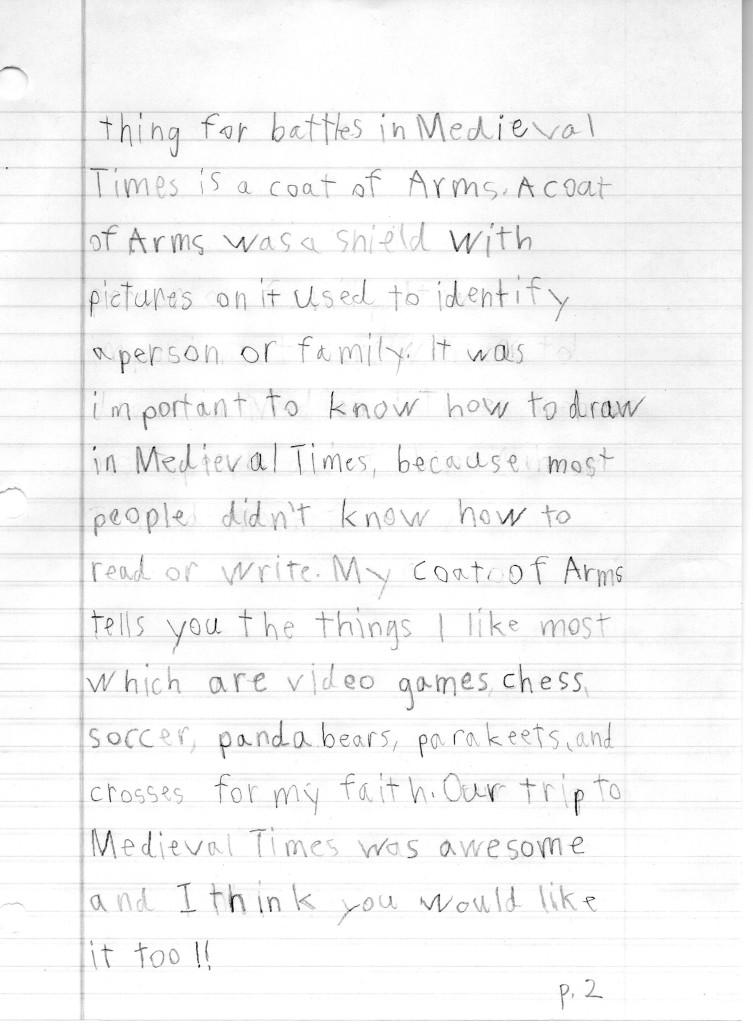 thing for battles in Medieval
Times is a coat of Arms. A coat
of Arms was a shield with
pictures on it used to identify
a person or family. It was
important to know how to draw
in Medieval Times, because most
people didn't know how to
read or write. My coat of Arms
tells you the things I like most
which are video games, chess,
soccer, panda bears, parakeets, and
crosses for my faith. Our trip to
Medieval Times was awesome
and I think you would like
it too!!
p. 2